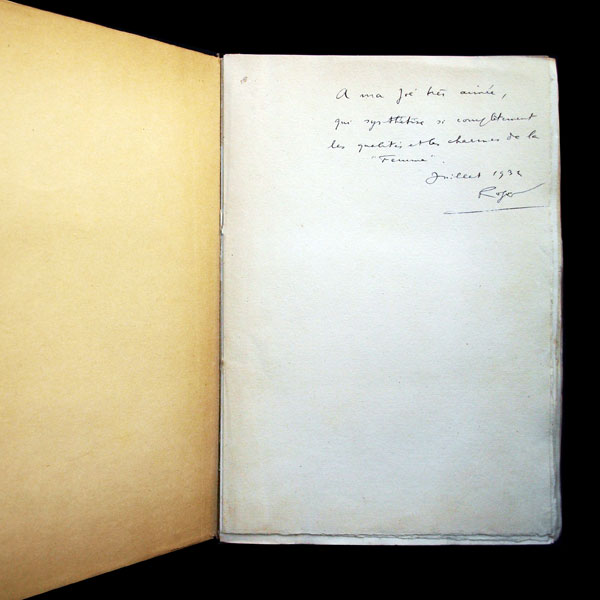 A ma Joé très aimée,
qui synthétise si complètement
les qualités et les charmes de la
"Femme".
Juillet 1932
Roger